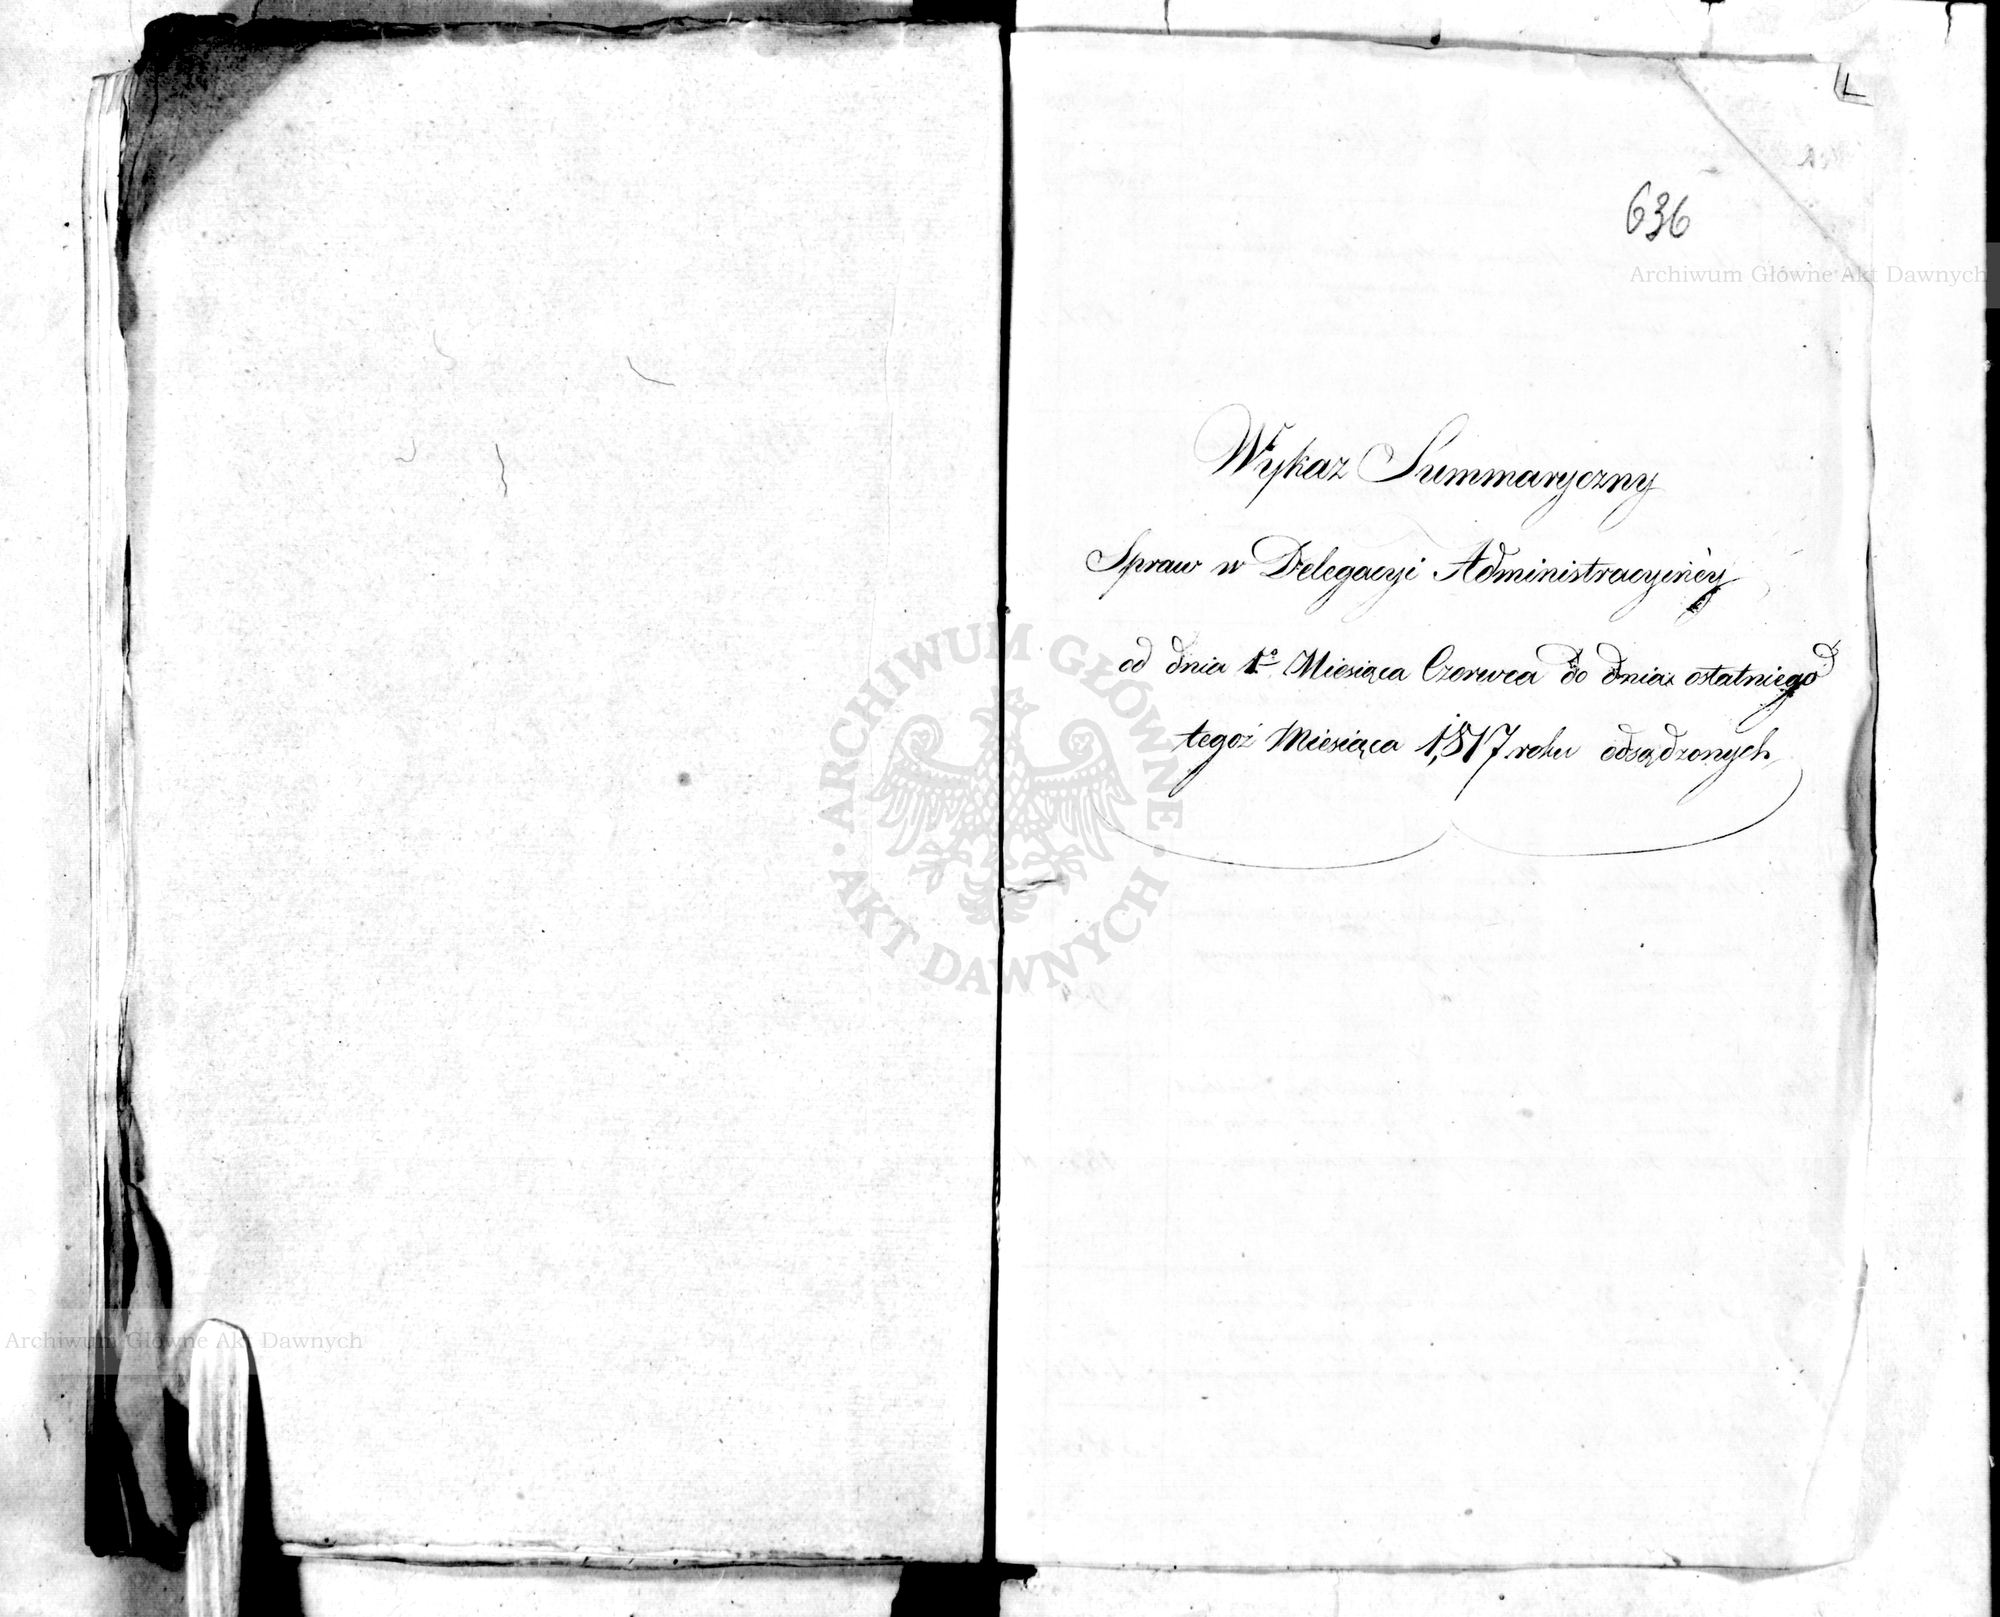 L
636
Archiwum Główne Akt Dawnych
Wykaz Summaryczny
Spraw w Delegacyi Administracyinéy
od dnia 1º Miesiąca Czerwca do dnia ostatniego
tegoż Miesiąca 1,817 roku odsądzonych
ARCHIWUM GŁÓWNE
AKT DAWNYCH
Archiwum Główne Akt Dawnych